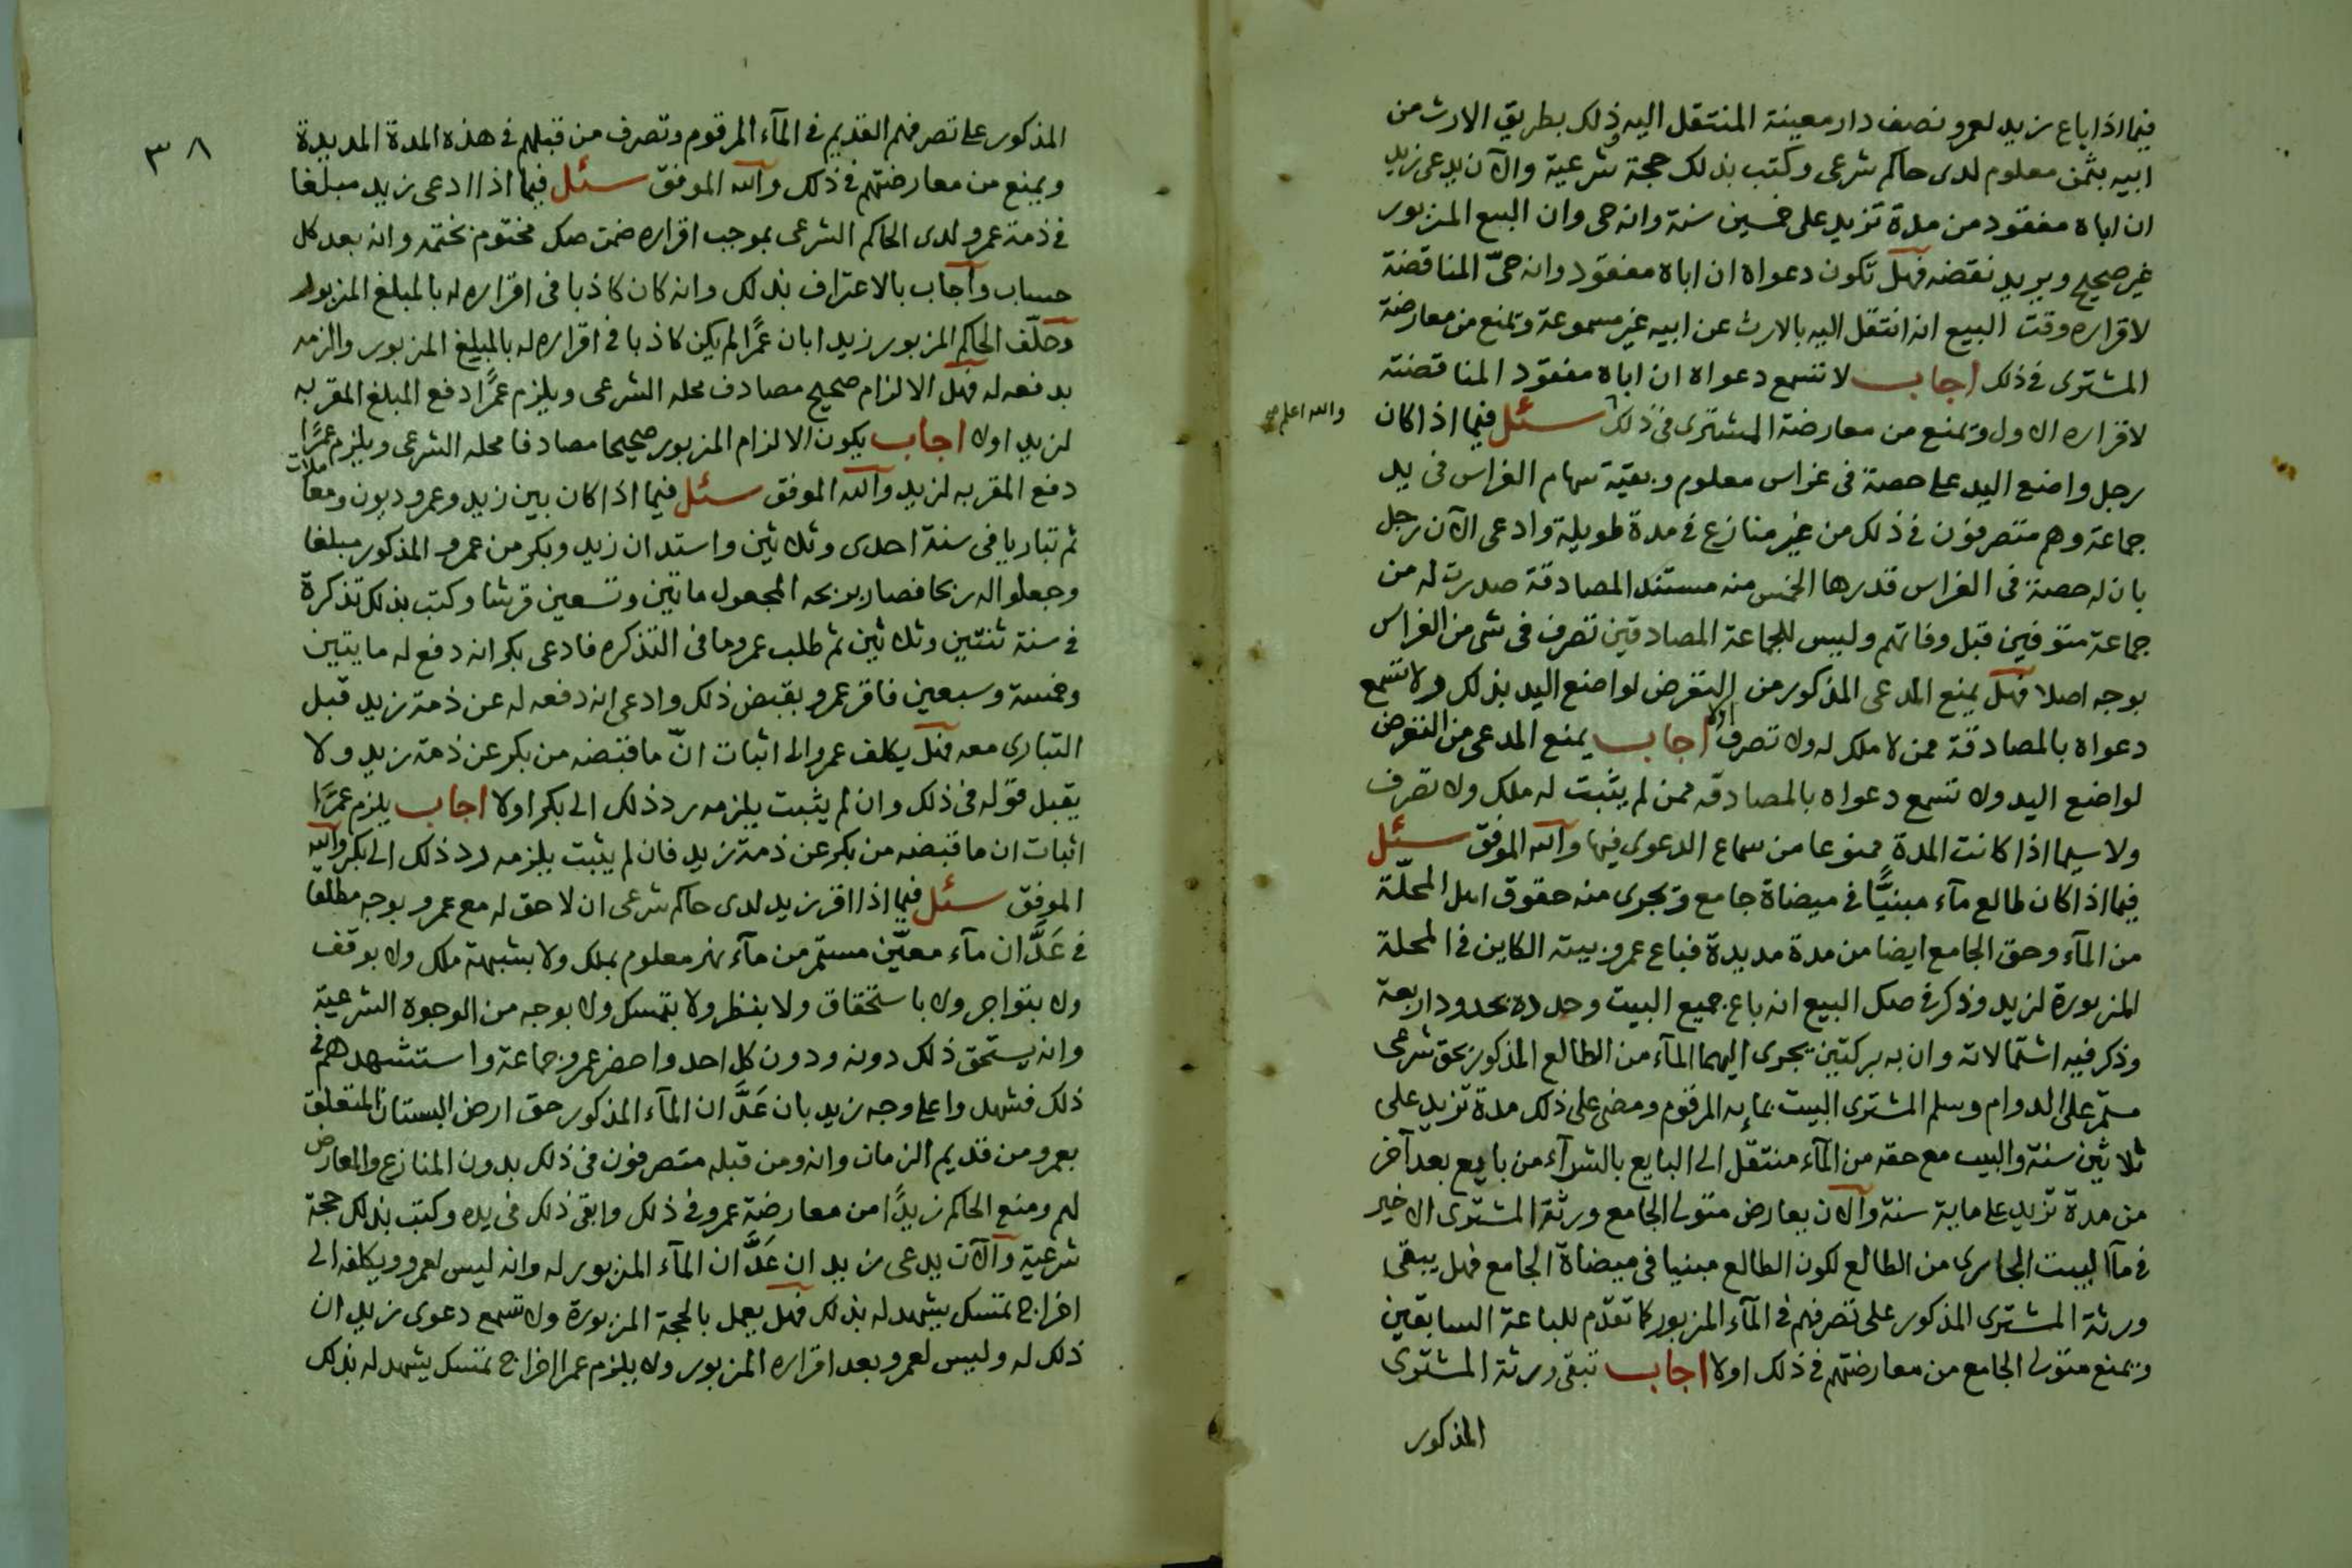 فيما اذا باع زيد لعمرو نصف دار معينة المنتقل اليه ذلك بطريق الارث من
ابيه بثمن معلوم لدى حاكم شرعى وكتب بذلك حجة شرعية والآن يدعى زيد
ان اباه مفقود من مدة تزيد على خمسين سنة وانه حى وان البيع المزبور
غير صحيح ويريد نقضه فهل تكون دعواه ان اباه مفقود وانه حىّ المناقضة
لاقراره وقت البيع انه انتقل اليه بالارث عن ابيه غير مسموعة ويمنع من معارضة
المشترى فى ذلك اجاب لا تسمع دعواه ان اباه مفقود المناقضته
لاقراره الاول ويمنع من معارضة المشترى فى ذلك سئل فيما اذا كان
والله اعلم
رجل واضع اليد على حصة فى غراس معلوم وبقية سهام الغراس فى يد
جماعة وهم متصرفون فى ذلك من غير منازع فى مدة طويلة وادعى الآن رجل
بان له حصة فى الغراس قدرها الخمس منه مستند المصادقة صدرت له من
جماعة متوفين قبل وفاتهم وليس للجماعة المصادقين تصرف فى شى من الغراس
بوجه اصلا فهل يمنع المدعى المذكور من التعرض لواضع اليد بذلك ولا تسمع
دعواه بالمصادقة ممن لا ملك له ولا تصرف ام لا اجاب يمنع المدعى من التعرض
لواضع اليد ولا تسمع دعواه بالمصادقه ممن لم يثبت له ملك ولا تصرف
ولا سيما اذا كانت المدة ممنوعا من سماع الدعوى فيها والله الموفق سئل
فيما اذا كان طالع مآء مبنيًّا فى ميضاة جامع ويجرى منه حقوق اهل المحلّة
من المآء وحق الجامع ايضا من مدة مديدة فباع عمرو بيته الكاين فى المحلة
المزبورة لزيد وذكر فى صك البيع انه باع جميع البيت وحدده بحدود اربعة
وذكر فيه اشتمالاته وان به بركتين يجرى اليهما المآء من الطالع المذكور بحق شرعى
مستمر على الدوام وسلم المشترى البيت بمايه المرقوم ومضى على ذلك مدة تزيد على
ثلاثين سنة والبيت مع حقه من المآء منتقل الى البايع بالشرآء من بايع بعد آخر
من مدة تزيد على ماية سنة والآن يعارض متولى الجامع ورثة المشترى الاخير
فى مآ البيت الجارى من الطالع لكون الطالع مبنيا فى ميضاة الجامع فهل يبقى
ورثة المشترى المذكور على تصرفهم فى المآء المزبور كما تقدّم للباعة السابقين
ويمنع متولى الجامع من معارضتهم فى ذلك اولا اجاب تبقى ورثة المشترى
المذكور
٣٨
المذكور على تصرفهم القديم فى المآء المرقوم وتصرف من قبلهم فى هذه المدة المديدة
ويمنع من معارضتهم فى ذلك والله الموفق سئل فيما اذا ادعى زيد مبلغا
فى ذمة عمرو لدى الحاكم الشرعى بموجب اقراره ضمن صك مختوم بختمه وانه بعد كل
حساب وآجاب بالاعتراف بذلك وانه كان كاذبا فى اقراره له بالمبلغ المزبور
وحلّف الحاكم المزبور زيدا بان عمرًا لم يكن كاذبا فى اقراره له بالمبلغ المزبور والزمه
بدفعه له فهل الالزام صحيح مصادف محله الشرعى ويلزم عمرًا دفع المبلغ المقر به
لزيد اولا اجاب يكون الالزام المزبور صحيحا مصادفا محله الشرعى ويلزم عمرًا
دفع المقر به لزيد والله الموفق سئل فيما اذا كان بين زيد وعمرو ديون ومعاملات
ثم تباريا فى سنة احدى وثلاثين واستدان زيد وبكر من عمرو المذكور مبلغا
وجعلوا له ربحا فصار بربحه المجعول مائتين وتسعين قرشا وكتب بذلك تذكرة
فى سنة ثنتين وثلاثين ثم طلب عمرو ما فى التذكره فادعى بكر انه دفع له مايتين
وخمسة وسبعين فاقر عمرو بقبض ذلك وادعى انه دفعه له عن ذمة زيد قبل
التبارى معه فهل يكلف عمرو الى اثبات انّ ما قبضه من بكر عن ذمة زيد ولا
يقبل قوله فى ذلك وان لم يثبت يلزمه رد ذلك الى بكر اولا اجاب يلزم عمرًا
اثبات ان ما قبضه من بكر عن ذمة زيد فان لم يثبت يلزمه رد ذلك الى بكر والله
الموفق سئل فيما اذا اقر زيد لدى حاكم شرعى ان لا حق له مع عمرو بوجه مطلقا
فى عَدَّان مآء معيّن مستمر من مآء نهر معلوم بملك ولا بشبهة ملك ولا بوقف
ولا بتواجر ولا باستحقاق ولا بنظر ولا بتمسك ولا بوجه من الوجوه الشرعية
وانه يستحق ذلك دونه ودون كل احد واحضر عمرو جماعة واستشهدهم فى
ذلك فشهدوا على وجه زيد بان عَدَّان المآء المذكور حق ارض البستان المتعلق
بعمرو من قديم الزمان وانه ومن قبله متصرفون فى ذلك بدون المنازع والمعارض
لهم ومنع الحاكم زيدًا من معارضة عمرو فى ذلك وابقى ذلك فى يده وكتب بذلك حجة
شرعية والآن يدعى زيد ان عَدَّان المآء المزبور له وانه ليس لعمرو ويكلفه الى
اخراج تمسك يشهد له بذلك فهل يعمل بالحجة المزبورة ولا تسمع دعوى زيد ان
ذلك له وليس لعمرو بعد اقراره المزبور ولا يلزم عمرا اخراج تمسك يشهد له بذلك